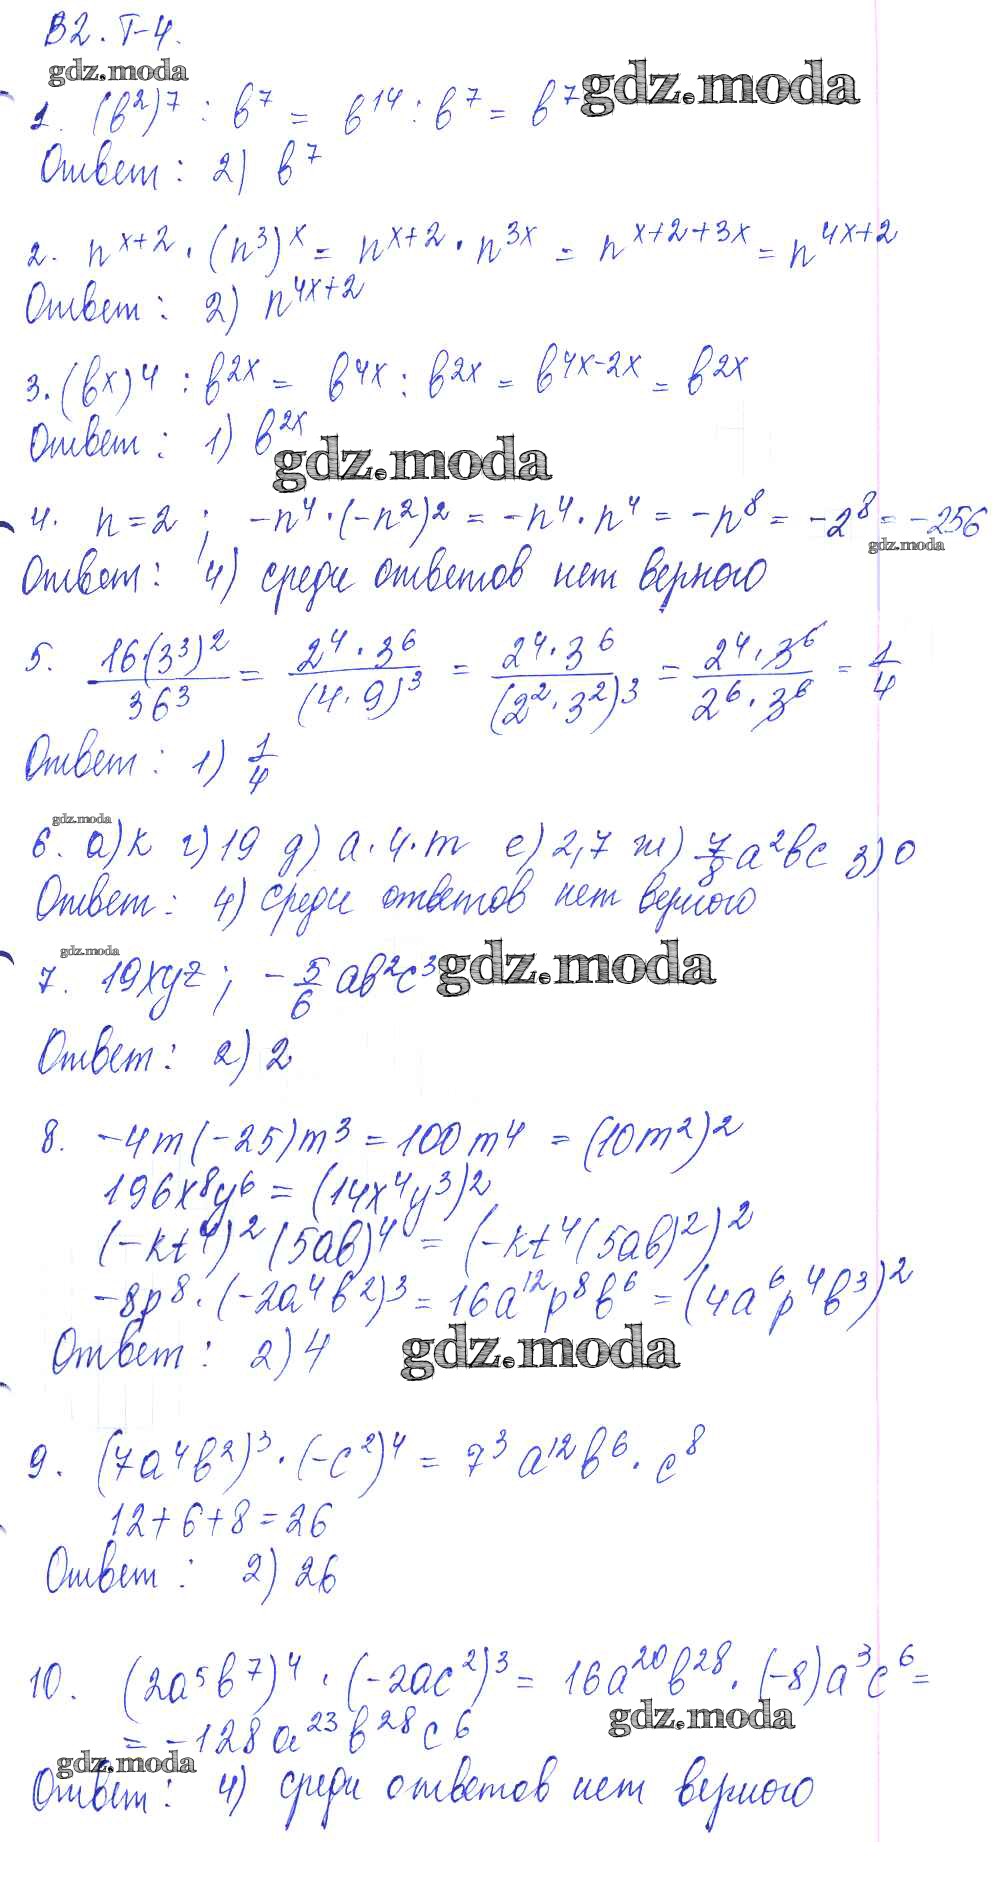 В2. Т-4.
gdz.moda
1. (b²)⁷ : b⁷ = b¹⁴ : b⁷ = b⁷ gdz.moda
Ответ: 2) b⁷
2. n^(x+2) · (n³)^x = n^(x+2) · n^(3x) = n^(x+2+3x) = n^(4x+2)
Ответ: 2) n^(4x+2)
3. (b^x)⁴ : b^(2x) = b^(4x) : b^(2x) = b^(4x-2x) = b^(2x)
Ответ: 1) b^(2x)
gdz.moda
4. n = 2 ; -n⁴ · (-n²)² = -n⁴ · n⁴ = -n⁸ = -2⁸ = -256
gdz.moda
Ответ: 4) среди ответов нет верного
5. (16·(3³)²)/(36³) = (2⁴ · 3⁶)/((4 · 9)³) = (2⁴ · 3⁶)/((2² · 3²)³) = (2⁴ · 3⁶)/(2⁶ · 3⁶) = 1/4
Ответ: 1) 1/4
gdz.moda
6. а) k г) 19 д) a · 4 · m е) 2,7 ж) 7/8 a²bc з) 0
Ответ: 4) среди ответов нет верного
gdz.moda
7. 19xyz ; - 5/6 ab²c³ gdz.moda
Ответ: 2) 2
8. -4m(-25)m³ = 100m⁴ = (10m²)²
196x⁸y⁶ = (14x⁴y³)²
(-kt⁴)² (5ab)⁴ = (-kt⁴(5ab)²)²
-8p⁸ · (-2a⁴b²)³ = 16a¹²p⁸b⁶ = (4a⁶p⁴b³)²
Ответ: 2) 4
gdz.moda
9. (7a⁴b²)³ · (-c²)⁴ = 7³a¹²b⁶ · c⁸
12 + 6 + 8 = 26
Ответ: 2) 26
10. (2a⁵b⁷)⁴ · (-2ac²)³ = 16a²⁰b²⁸ · (-8)a³c⁶ =
gdz.moda
= -128a²³b²⁸c⁶
gdz.moda
Ответ: 4) среди ответов нет верного